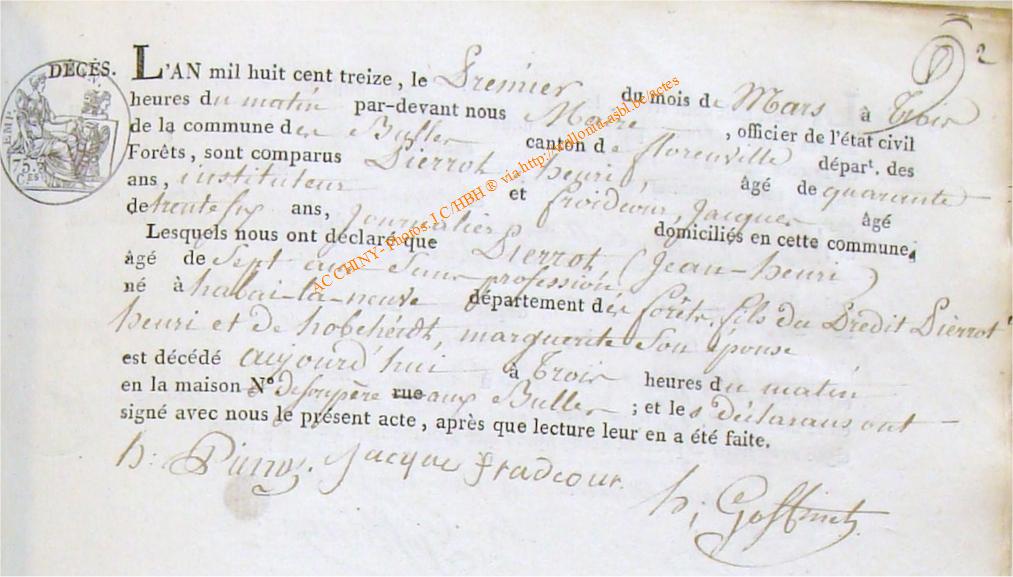 2
DÉCÈS. L'AN mil huit cent treize, le Premier du mois de Mars à trois
heures du matin par-devant nous Maire, officier de l'état civil
de la commune des Bulles canton de florenville départ. des
Forêts, sont comparus Pierrot, henri, âgé de quarante
ans, instituteur et froidcour, Jacques âgé
de trente six ans, Journalier domiciliés en cette commune,
Lesquels nous ont déclaré que Pierrot, (Jean-henri)
âgé de Sept ans Sans profession,
né à habai-la-neuve département des forêts, fils du Prédit Pierrot
henri et de marguerite Son épouse
est décédé aujourd'hui à trois heures du matin
en la maison N° de son père rue aux Bulles ; et les déclarans ont
signé avec nous le présent acte, après que lecture leur en a été faite.
h: Pierrot. Jacque fradcour. h; Goffinet
EMP.
75
CES
ACCHINY- Photos J.C/HBH ® via http://wallonia-asbl.be/actes